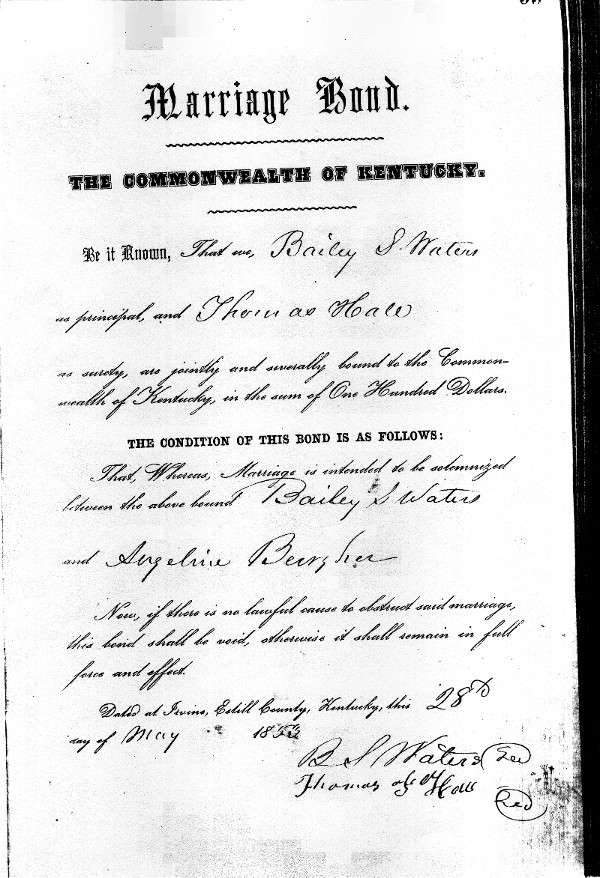 Marriage Bond.
THE COMMONWEALTH OF KENTUCKY.
Be it Known, That we, Bailey S. Waters
as principal, and Thomas Hall
as surety, are jointly and severally bound to the Common-
wealth of Kentucky, in the sum of One Hundred Dollars.
THE CONDITION OF THIS BOND IS AS FOLLOWS:
That, Whereas, Marriage is intended to be solemnized
between the above bound Bailey S Waters
and Angeline
Now, if there is no lawful cause to obstruct said marriage,
this bond shall be void, otherwise it shall remain in full
force and effect.
Dated at Irvine, Estill County, Kentucky, this 28th
day of May 185
B S Waters
Thomas Hall